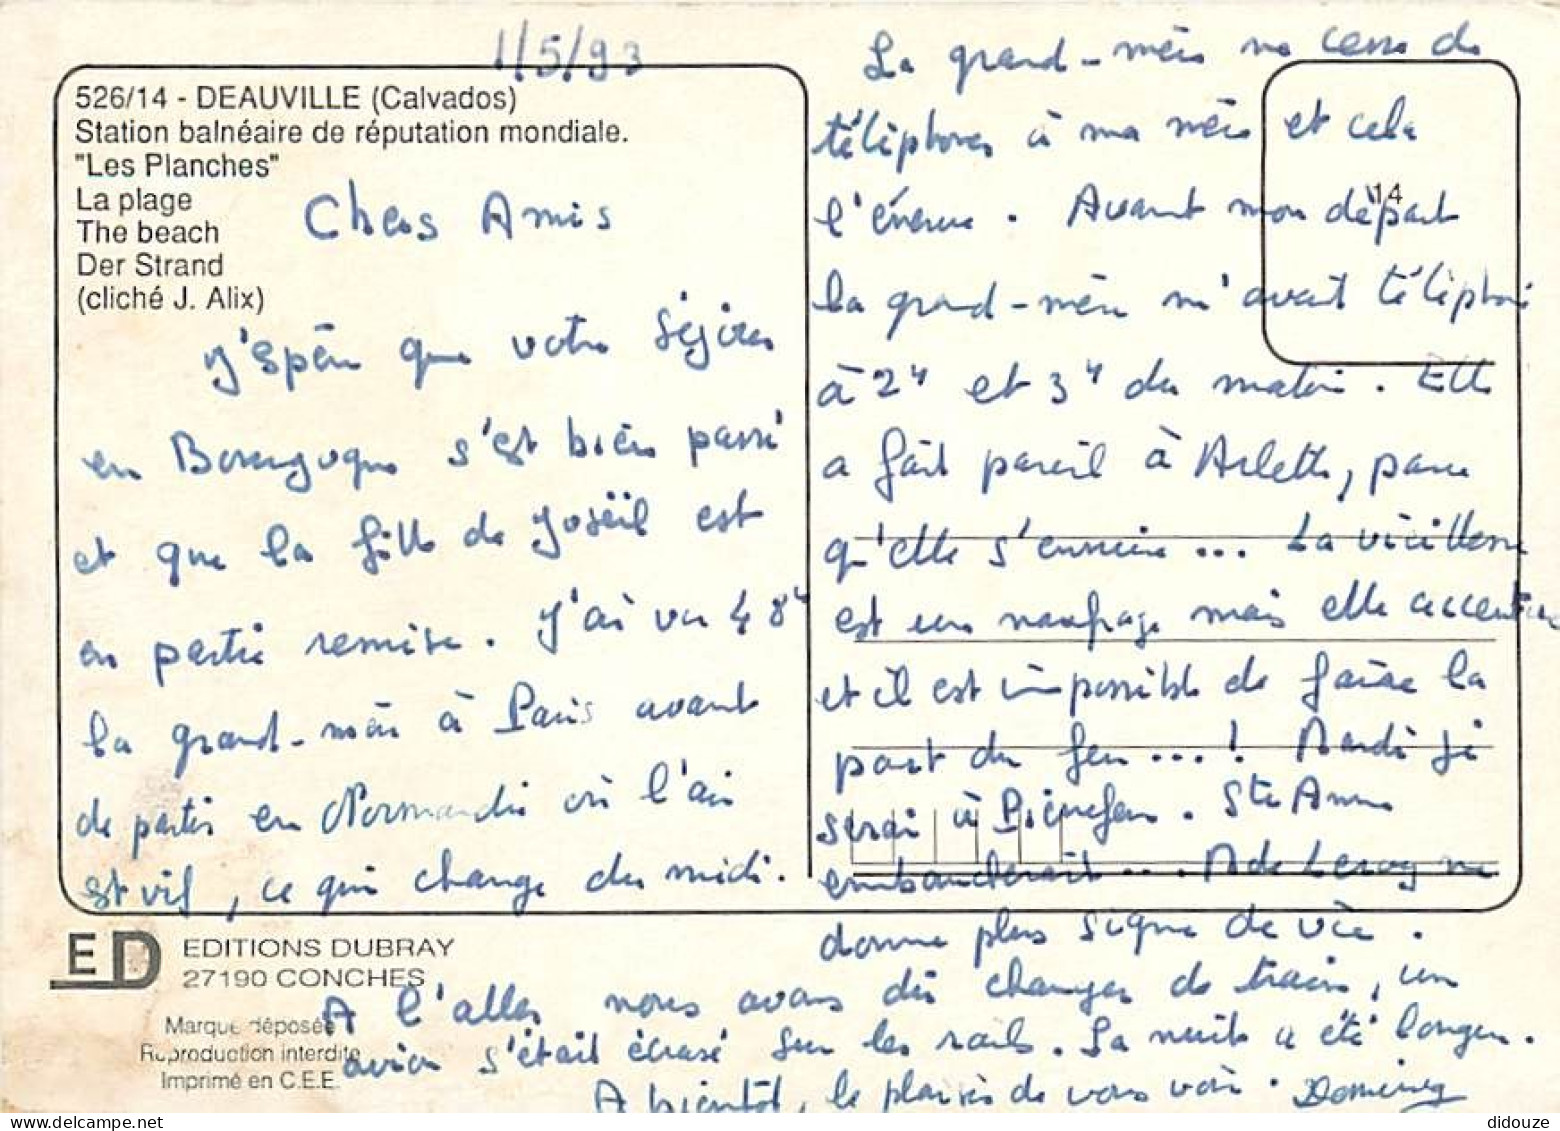 1/5/93
526/14 - DEAUVILLE (Calvados)
Station balnéaire de réputation mondiale.
"Les Planches"
La plage
The beach
Der Strand
(cliché J. Alix)
Chers Amis
J'espère que votre séjour
en Bourgogne s'est bien passé
et que la fille de est
en partie remise. J'ai vu 48h
la grand-mère à Paris avant
de partir en Normandie où l'air
est vif, ce qui change du midi.
La grand-mère ne cesse de
téléphoner à ma mère et cela
l'énerve. Avant mon départ
14
la grand-mère m'avait téléphoné
à 2h et 3h du matin. Elle
a fait pareil à Arlette, parce
qu'elle s'ennuie... La vieillesse
est un naufrage mais elle accentue
et il est impossible de faire la
part du feu...! Mardi je
serai à Pierrefeu. Ste Anne
embaucherait... Mde Leroy ne
donne plus signe de vie.
A l'aller nous avons dû changer de train, un
avion s'était écrasé sur les rails. La nuit a été longue.
A bientôt, le plaisir de vous voir.
ED
EDITIONS DUBRAY
27190 CONCHES
Marque déposée
Reproduction interdite
Imprimé en C.E.E.
didouze